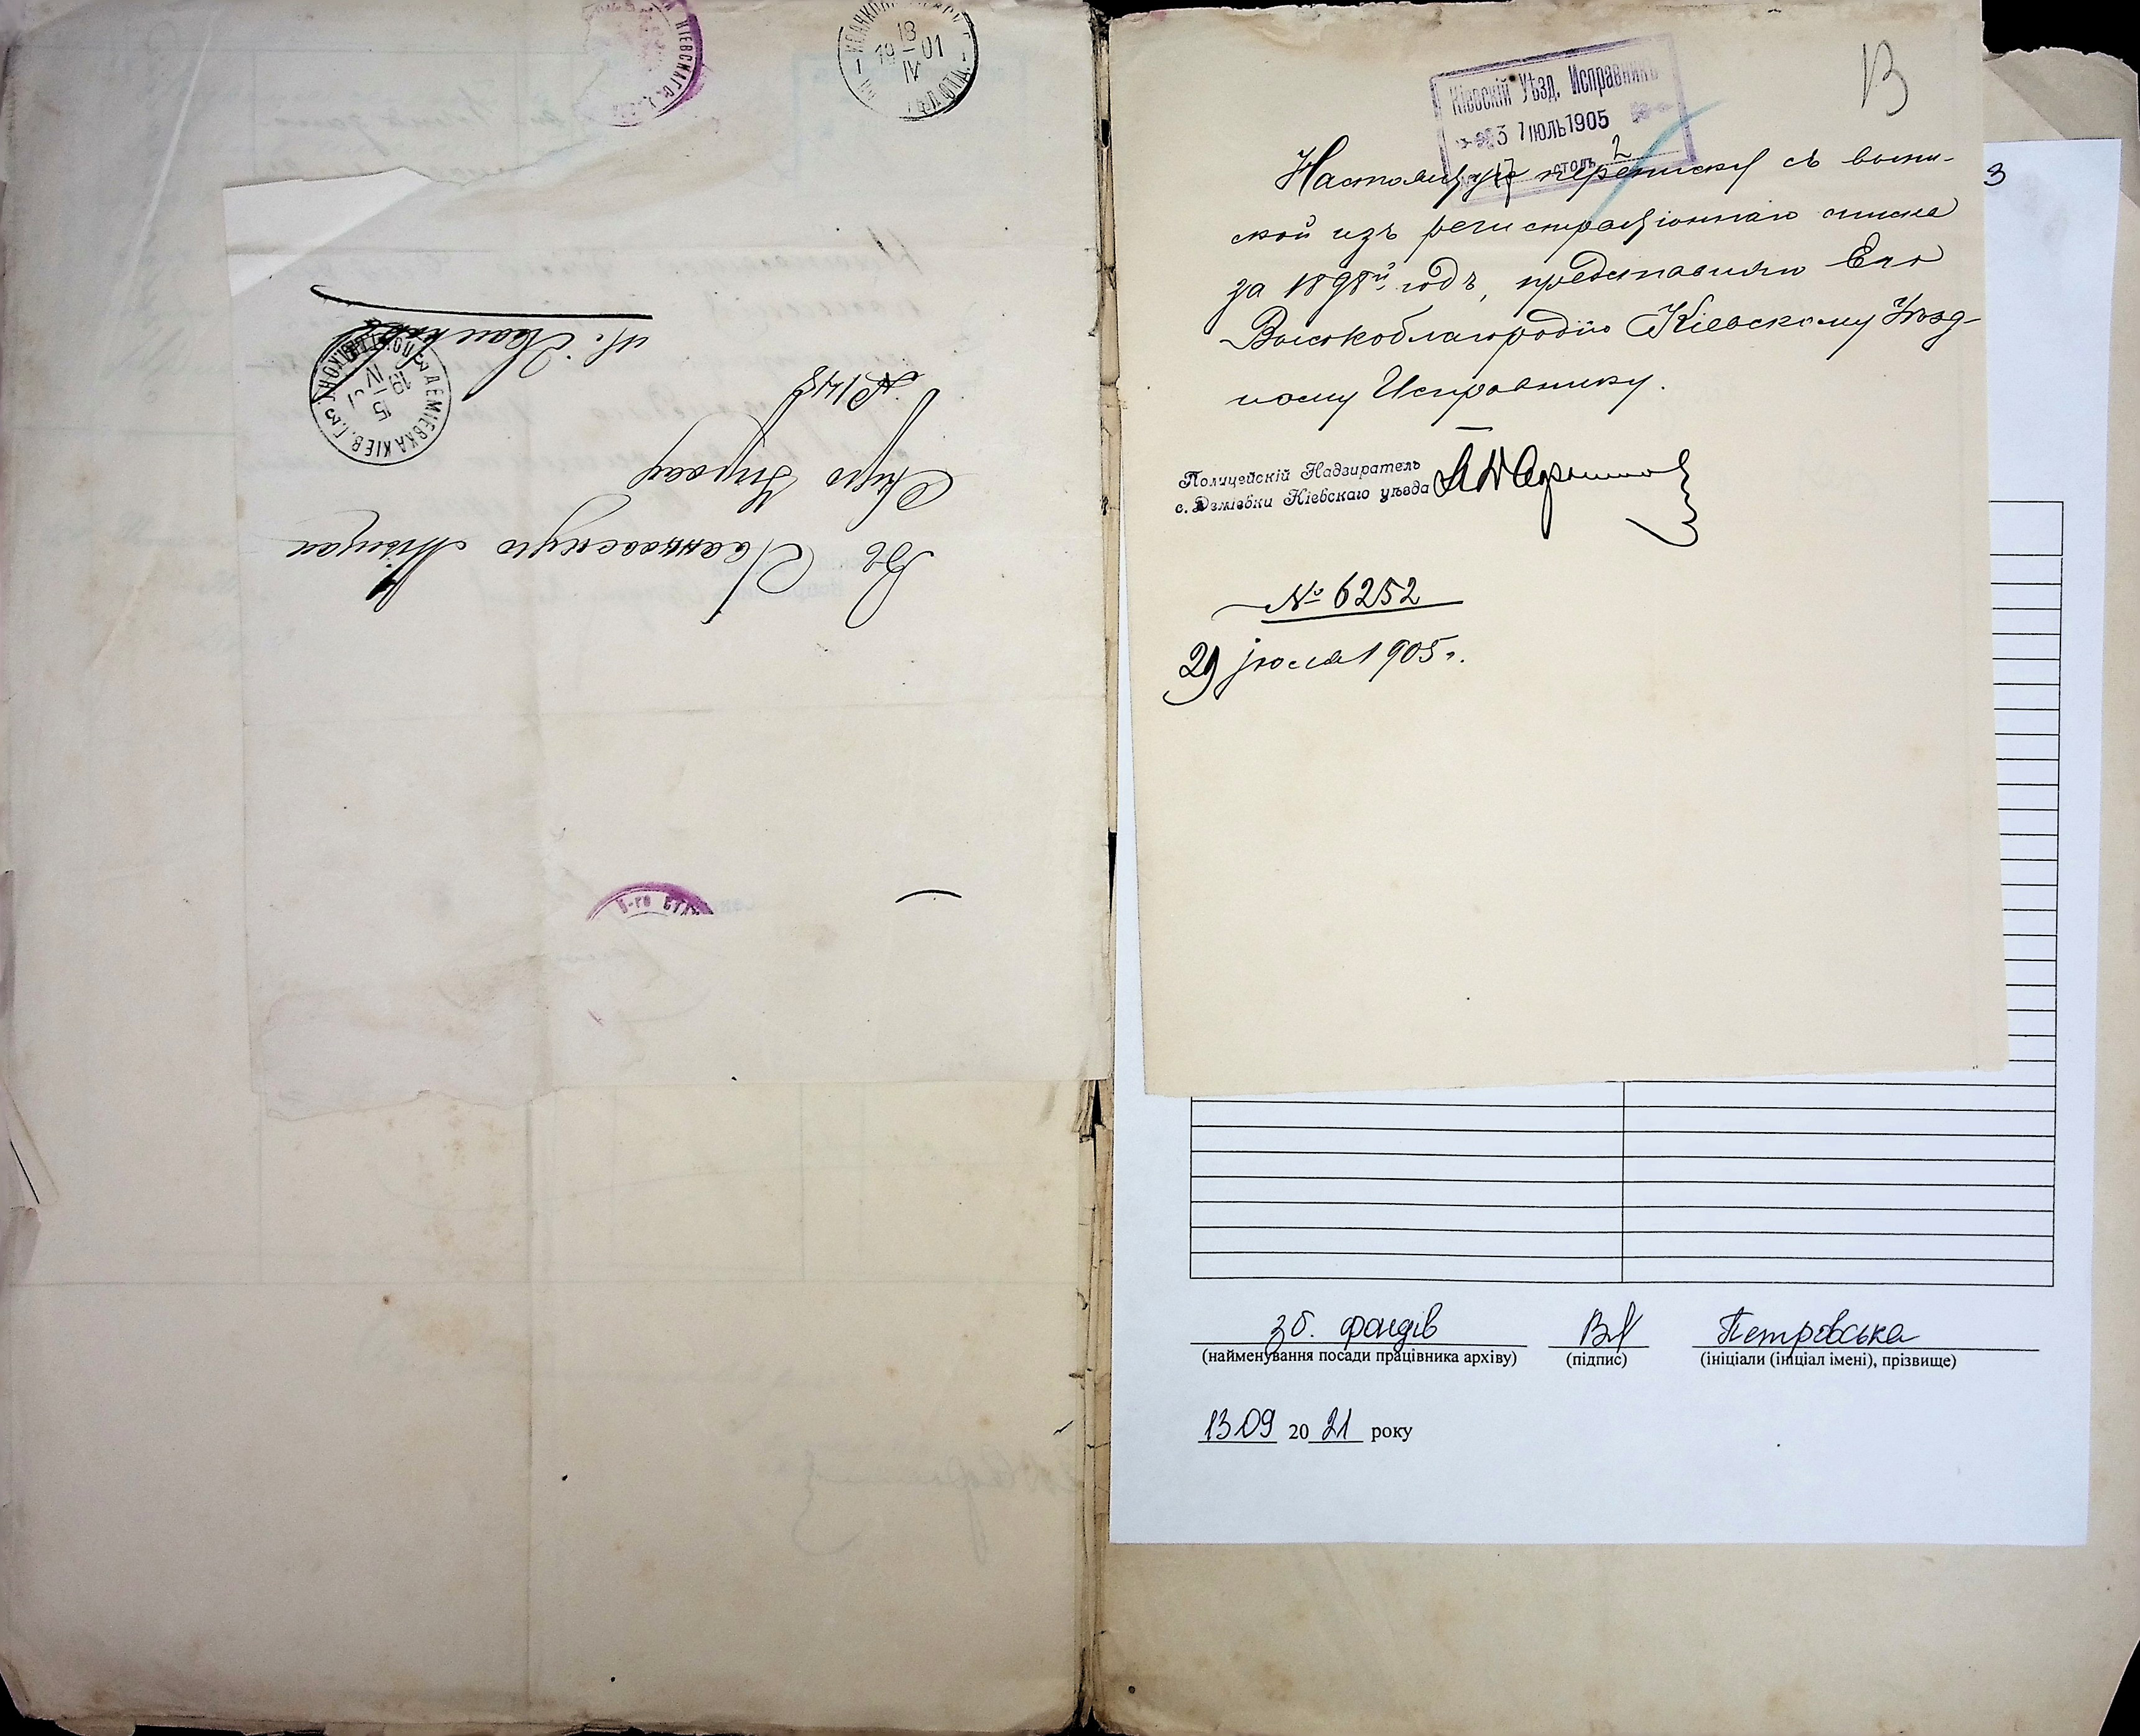 18
19 01
IV
КІЕВСКАГО
В. Каневскую Мѣщан
скую Управу
№ 1473
м. Каневъ
ДЕМІЕВКА КІЕВ. Г.
15
IV
19
5-го
13
Кіевскій Уѣзд. Исправникъ
3 Іюль 1905
столъ 2
Настоящую переписку съ выпи-
ской изъ регистраціоннаго списка
за 1898й годъ, представляю Его
Высокоблагородію Кіевскому Уѣзд-
ному Исправнику.
Полицейскій Надзиратель
с. Деміевки Кіевскаго уѣзда
№ 6252
29 іюля 1905 г.
3
зб. фондів Петровська
(найменування посади працівника архіву) (підпис) (ініціали (ініціал імені), прізвище)
13 09 20 21 року